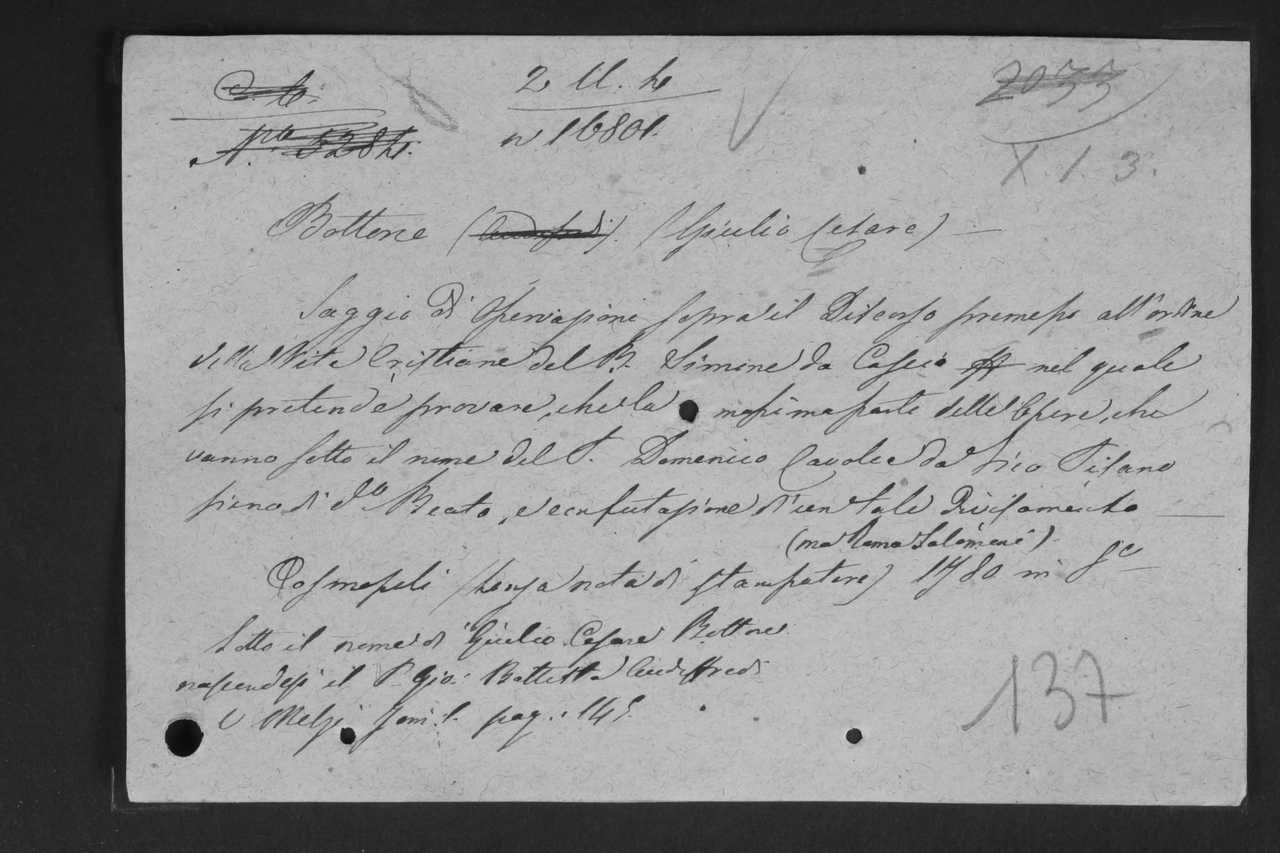 2 U. h
2033
n 16801.
X. 1. 3.
Bottone (Audifredi). (Giulio Cesare) —
Saggio di Osservazioni sopra il Discorso premesso all'ordine
della Vita Cristiana del B. Simone da Cascia nel quale
si pretende provare, che la massima parte delle Opere, che
vanno sotto il nome del P. Domenico Cavalca da Vico Pisano
sieno di do Beato, e confutazione d'un tale Divisamento —
(ma Roma Salomoni)
Cosmopoli (senza nota di stampatore) 1780 in 8o
Sotto il nome di Giulio Cesare Bottone
nascondesi il P. Gio: Battista Audiffredi
V Melzi Tom. 1. pag. 145
137